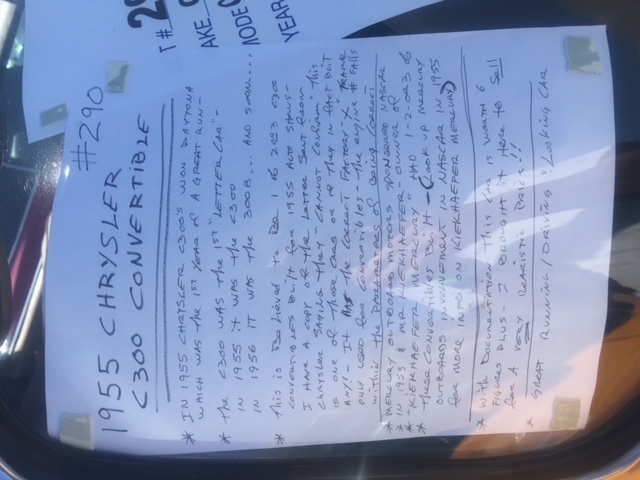 #290
1955 CHRYSLER
C300 CONVERTIBLE
* IN 1955 CHRYSLER C300'S WON DAYTONA
WHICH WAS THE 1ST YEAR OF A GREAT RUN-
* THE C300 WAS THE 1ST "LETTER CAR"-
IN 1955 IT WAS THE C300
IN 1956 IT WAS THE 300B... AND SOON....
* THIS IS BELIEVED TO BE 1 OF 2 OR 3 C300
CONVERTIBLES BUILT FOR 1955 AUTO SHOWS-
I HAVE A COPY OF THE LETTER SENT FROM
CHRYSLER SAYING THEY CANNOT CONFIRM THIS
IS ONE OF THOSE CARS OR IF THEY IN FACT BUILT
ANY!- IT HAS THE CORRECT FACTORY "X" FRAME
ONLY USED FOR CONVERTIBLES - THE ENGINE # FALLS
WITHIN THE OF BEING CORRECT
* MERCURY OUTBOARD MOTORS SPONSORED NASCAR
* IN 1955 & MR KIEKHAEFER - OWNER OF
* "KIEKHAEFER MERCURY" HAD 1-2-OR 3 OF
* THESE CONVERTIBLES BUILT - (LOOK UP MERCURY
OUTBOARDS INVOLVEMENT IN NASCAR IN 1955
FOR MORE INFO ON KIEKHAEFER MERCURY)
* WITH DOCUMENTATION THIS CAR IS WORTH 6
FIGURES PLUS - I BROUGHT IT HERE TO SELL
FOR A VERY REALISTIC PRICE!!
* GREAT RUNNING / DRIVING & LOOKING CAR
T # 29
AKE
MODE
YEAR